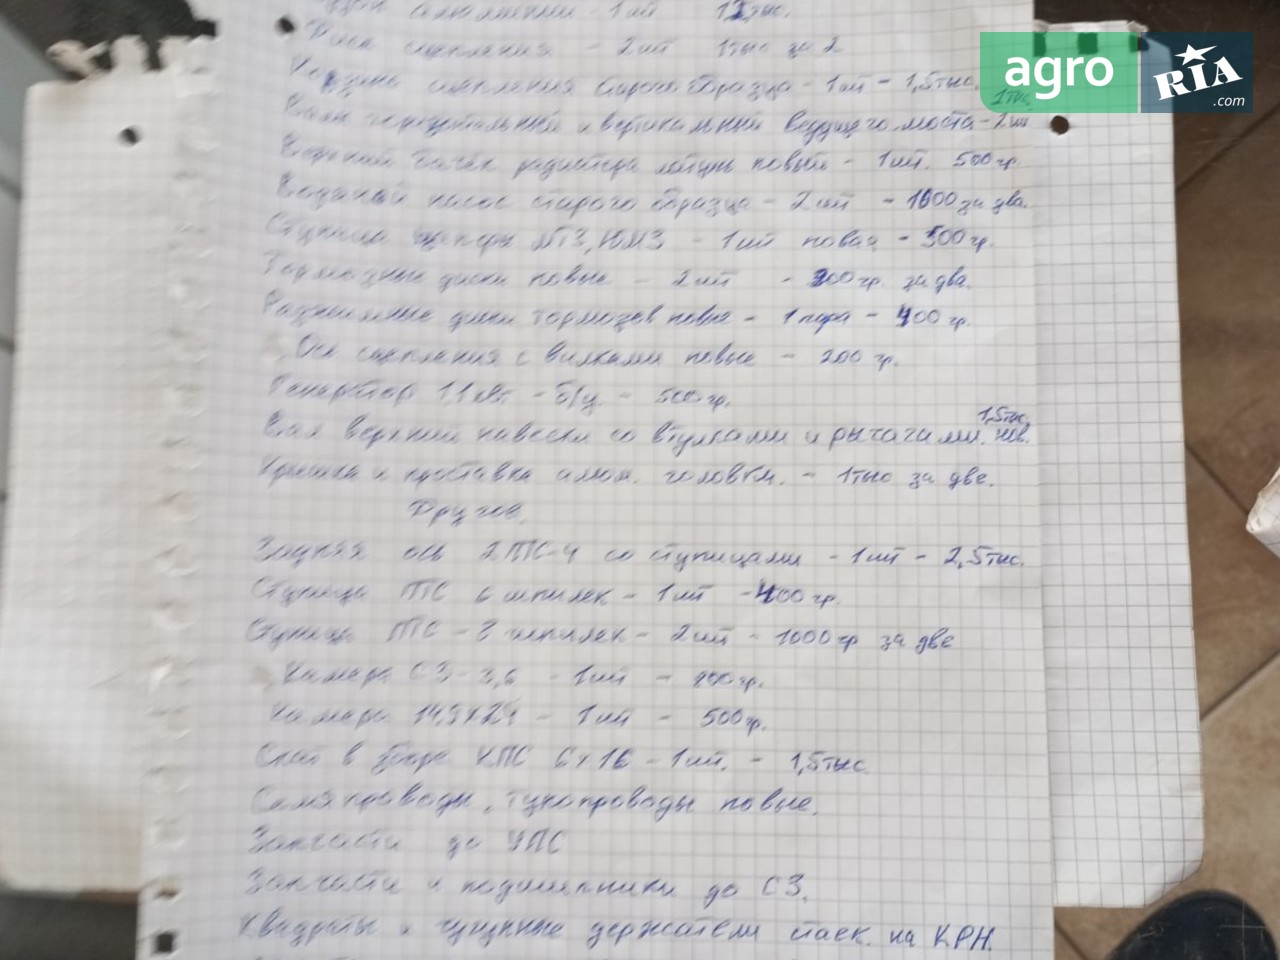 алюминий - 1 шт 12тыс.
Диск сцепления - 2 шт 1тыс за 2
Корзина сцепления старого образца - 1 шт - 1,5тыс.
1тыс
Валы горизонтальный и вертикальный ведущего моста - 2 шт
Верхний бачек радиатора латунь новый - 1 шт. 500 гр.
Водяной насос старого образца - 2 шт - 1600 за два.
Ступица цапфы МТЗ, ЮМЗ - 1 шт новая - 500 гр.
Тормозные диски новые - 2 шт - 300 гр. за два.
Разжимные диски тормозов новые - 1 пара - 400 гр.
Ось сцепления с вилками новые - 200 гр.
Генератор 1,1 квт - б/у. - 500 гр.
1,5тыс.
Вал верхний навески со втулками и рычагами. нов.
Крышка и проставка алюм. головки. - 1тыс за две.
Другое.
Задняя ось 2ПТС-4 со ступицами - 1 шт - 2,5тыс.
Ступица ПТС 6 шпилек - 1 шт - 400 гр.
Ступица ПТС - 8 шпилек - 2 шт - 1000 гр за две
Камера СЗ-3,6 - 1 шт - 200 гр.
Камера 14,9х24 - 1 шт - 500 гр.
Скат в зборе КПС 6х16 - 1 шт. - 1,5тыс
Семяпроводы, тукопроводы новые.
Запчасти до УПС
Запчасти и подшипники до СЗ.
Квадраты и чугунные держатели стоек. на КРН.
agro
RIA
.com